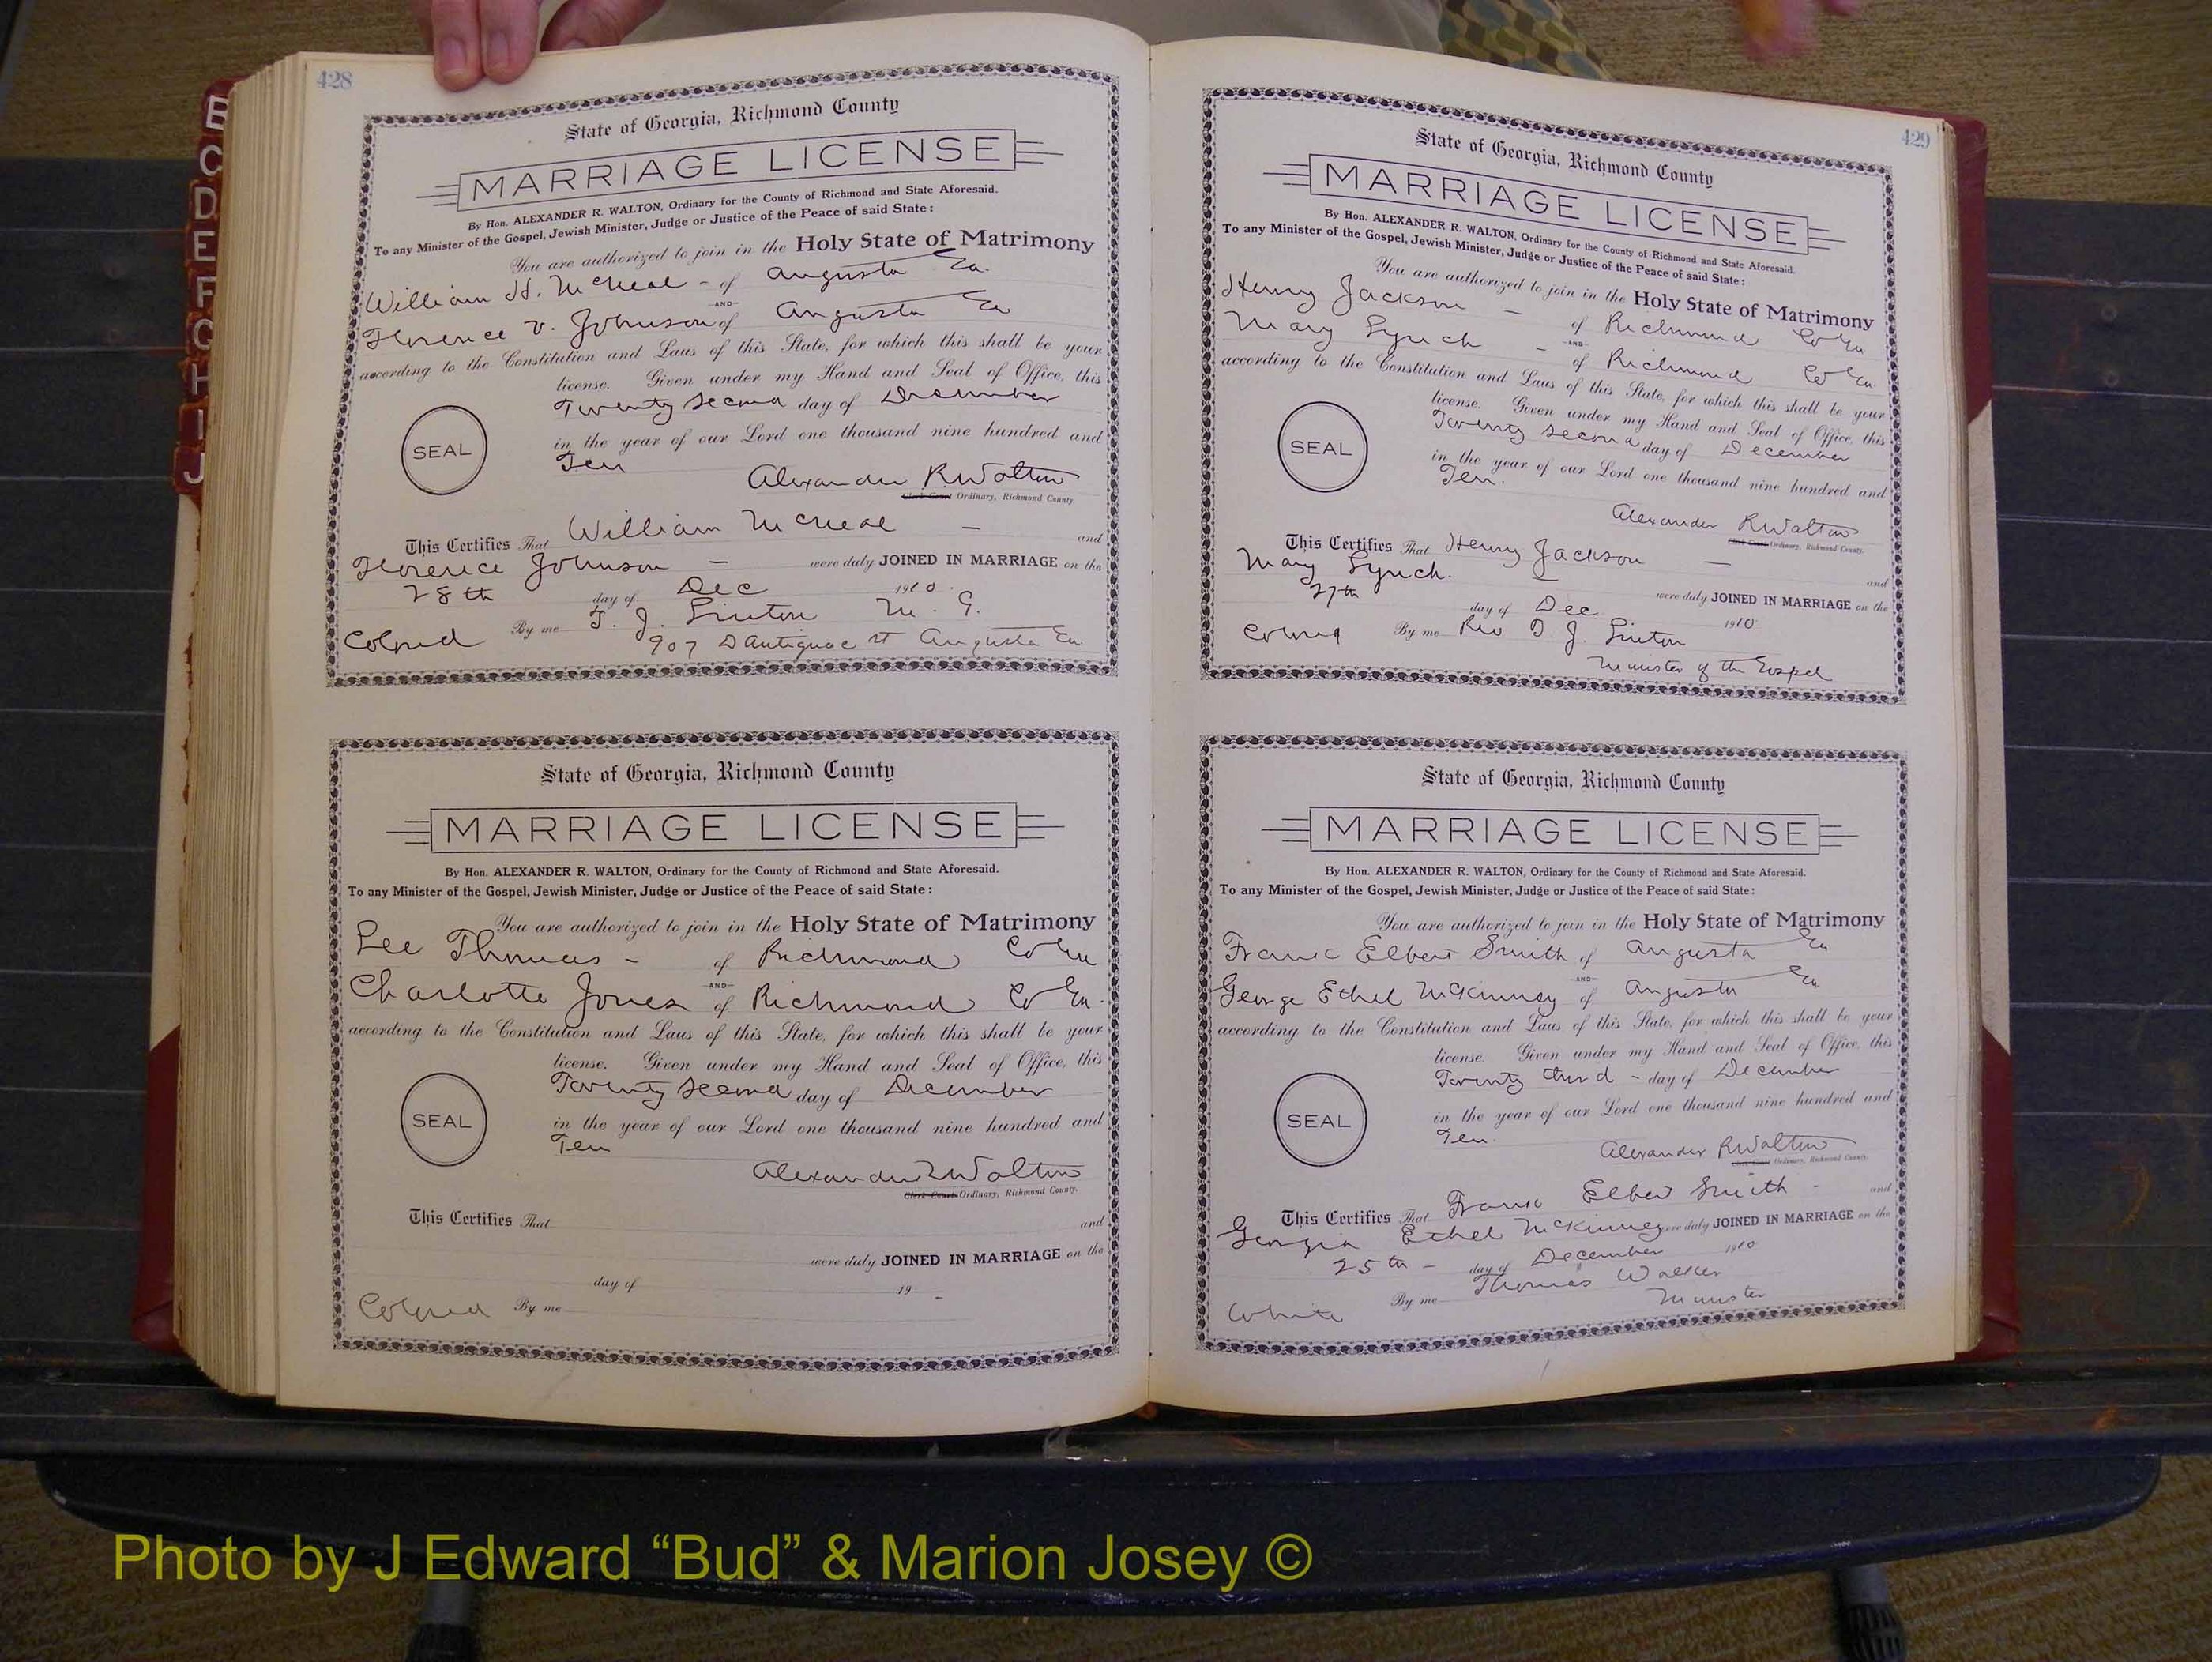 428
State of Georgia, Richmond County
MARRIAGE LICENSE
By Hon. ALEXANDER R. WALTON, Ordinary for the County of Richmond and State Aforesaid.
To any Minister of the Gospel, Jewish Minister, Judge or Justice of the Peace of said State:
You are authorized to join in the Holy State of Matrimony
William H. McNeal - of Augusta Ga.
AND
Florence V. Johnson of Augusta Ga
according to the Constitution and Laws of this State, for which this shall be your
license. Given under my Hand and Seal of Office, this
Twenty second day of December
SEAL
in the year of our Lord one thousand nine hundred and
Ten
Alexander R Walton
Clerk Court Ordinary, Richmond County.
This Certifies That William McNeal - and
Florence Johnson - were duly JOINED IN MARRIAGE on the
28th day of Dec 1910.
Colored By me T. J. Linton M. G.
907 D'Antignac st Augusta Ga
State of Georgia, Richmond County
MARRIAGE LICENSE
By Hon. ALEXANDER R. WALTON, Ordinary for the County of Richmond and State Aforesaid.
To any Minister of the Gospel, Jewish Minister, Judge or Justice of the Peace of said State:
You are authorized to join in the Holy State of Matrimony
Lee Thomas - of Richmond Co Ga
AND
Charlotte Jones of Richmond Co Ga.
according to the Constitution and Laws of this State, for which this shall be your
license. Given under my Hand and Seal of Office, this
Twenty second day of December
SEAL
in the year of our Lord one thousand nine hundred and
Ten
Alexander R Walton
Clerk Court Ordinary, Richmond County.
This Certifies That and
were duly JOINED IN MARRIAGE on the
day of 19 -
Colored By me
429
State of Georgia, Richmond County
MARRIAGE LICENSE
By Hon. ALEXANDER R. WALTON, Ordinary for the County of Richmond and State Aforesaid.
To any Minister of the Gospel, Jewish Minister, Judge or Justice of the Peace of said State:
You are authorized to join in the Holy State of Matrimony
Henry Jackson - of Richmond Co Ga
AND
Mary Lynch - of Richmond Co Ga
according to the Constitution and Laws of this State, for which this shall be your
license. Given under my Hand and Seal of Office, this
Twenty second day of December
SEAL
in the year of our Lord one thousand nine hundred and
Ten.
Alexander R Walton
Clerk Court Ordinary, Richmond County.
This Certifies That Henry Jackson - and
Mary Lynch. - were duly JOINED IN MARRIAGE on the
27th day of Dec 1910
Colored By me Rev T. J. Linton
Minister of the Gospel
State of Georgia, Richmond County
MARRIAGE LICENSE
By Hon. ALEXANDER R. WALTON, Ordinary for the County of Richmond and State Aforesaid.
To any Minister of the Gospel, Jewish Minister, Judge or Justice of the Peace of said State:
You are authorized to join in the Holy State of Matrimony
Frank Elbert Smith of Augusta Ga
AND
George Ethel McKinney of Augusta Ga
according to the Constitution and Laws of this State, for which this shall be your
license. Given under my Hand and Seal of Office, this
Twenty third - day of December
SEAL
in the year of our Lord one thousand nine hundred and
Ten.
Alexander R Walton
Clerk Court Ordinary, Richmond County.
This Certifies That Frank Elbert Smith - and
Georgia Ethel McKinney were duly JOINED IN MARRIAGE on the
25th - day of December 1910
By me Thomas Walker
White Minister
B
C
D
E
F
G
H
I
J
Photo by J Edward “Bud” & Marion Josey ©